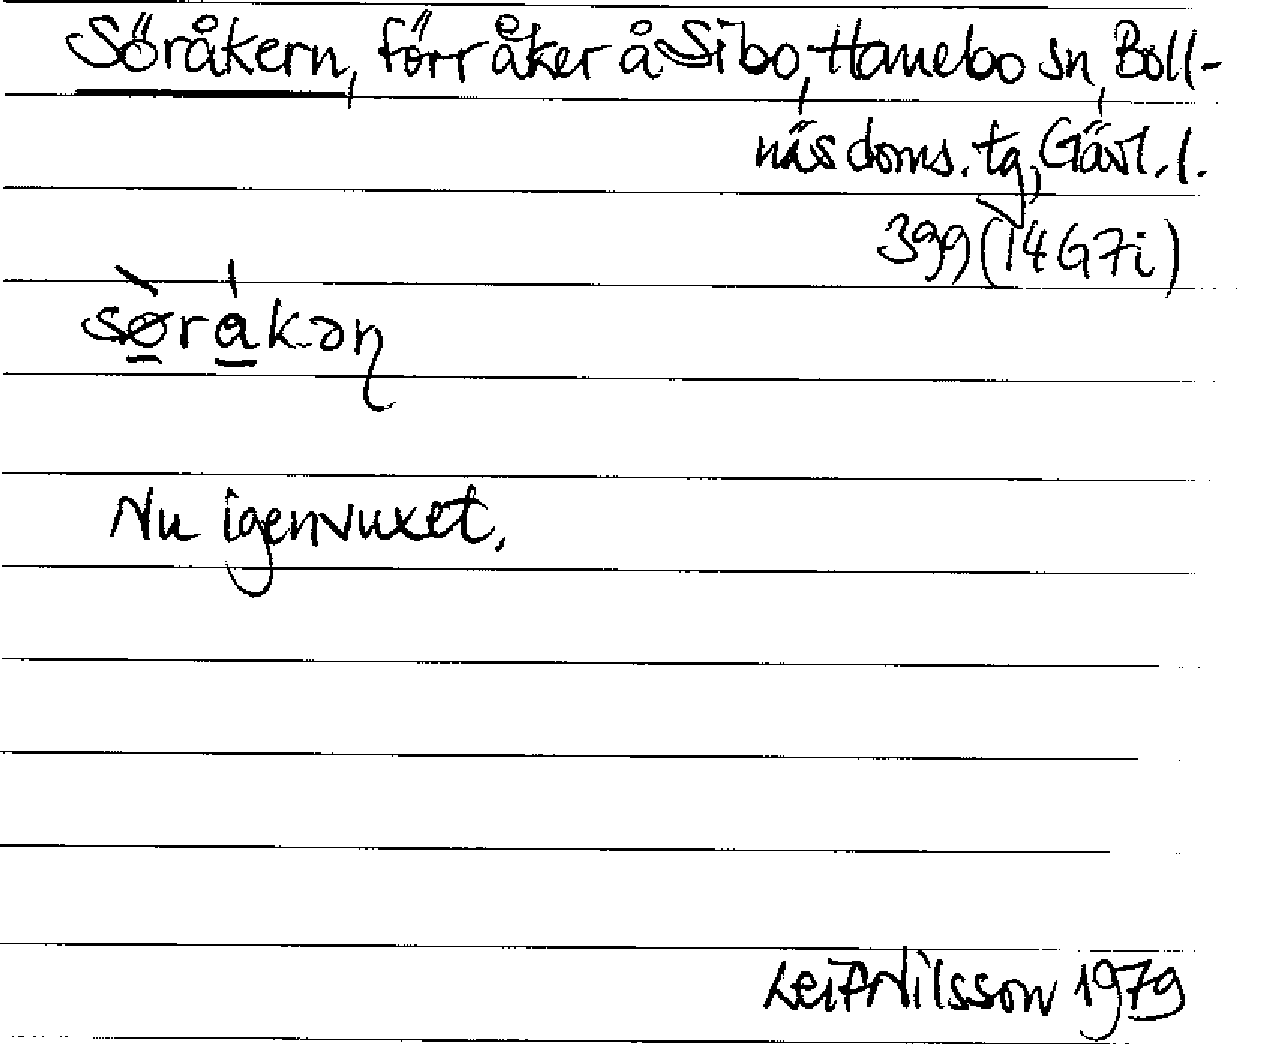 Söråkern, förr åker å Sibo, Hanebo sn, Boll-
näs doms. tg, Gävl. l.
399 (14G7i)
sø̱̀rá̱kəɳ
Nu igenvuxet.
Leif Nilsson 1979